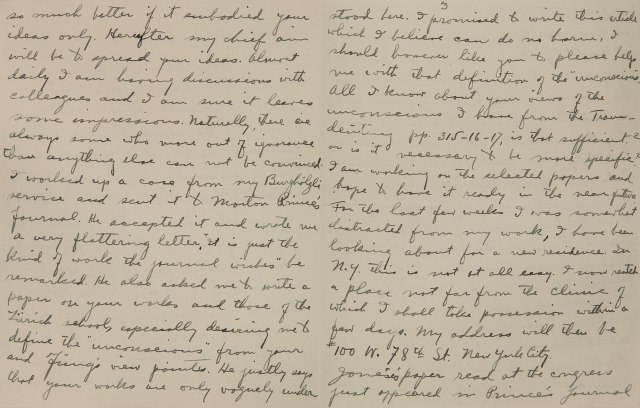 so much better if it embodied your
ideas only. Hereafter my chief aim
will be to spread your ideas. Almost
daily I am having discussions with
colleagues and I am sure it leaves
some impressions. Naturally, there are
always some who more out of ignorance
than anything else can not be convinced.
I worked up a case from my Burghölzli
service and sent it to Morton Prince's
journal. He accepted it and wrote me
a very flattering letter. "It is just the
kind of work the journal wishes" he
remarked. He also asked me to write a
paper on your works and those of the
Zürich school, especially desiring me to
define the "unconscious" from your
and Jung's view points. He justly says
that your works are only vaguely under
3
stood here. I promised to write this article
which I believe can do no harm. I
should however like you to please help
me with that definition of the "unconscious"
All I know about your views of the
unconscious I have from the Traum-
deutung pp. 315-16-17, is that sufficient?
or is it necessary to be more specific?
I am working on the selected papers and
hope to have it ready in the near future
For the last few weeks I was somewhat
distracted from my work, I have been
looking about for a new residence. In
N.Y. this is not at all easy. I now rented
a place not far from the clinic of
which I shall take possession within a
few days. My address will then be
#100 W. 78th St. New York City
Jones's paper read at the congress
just appeared in Prince's Journal